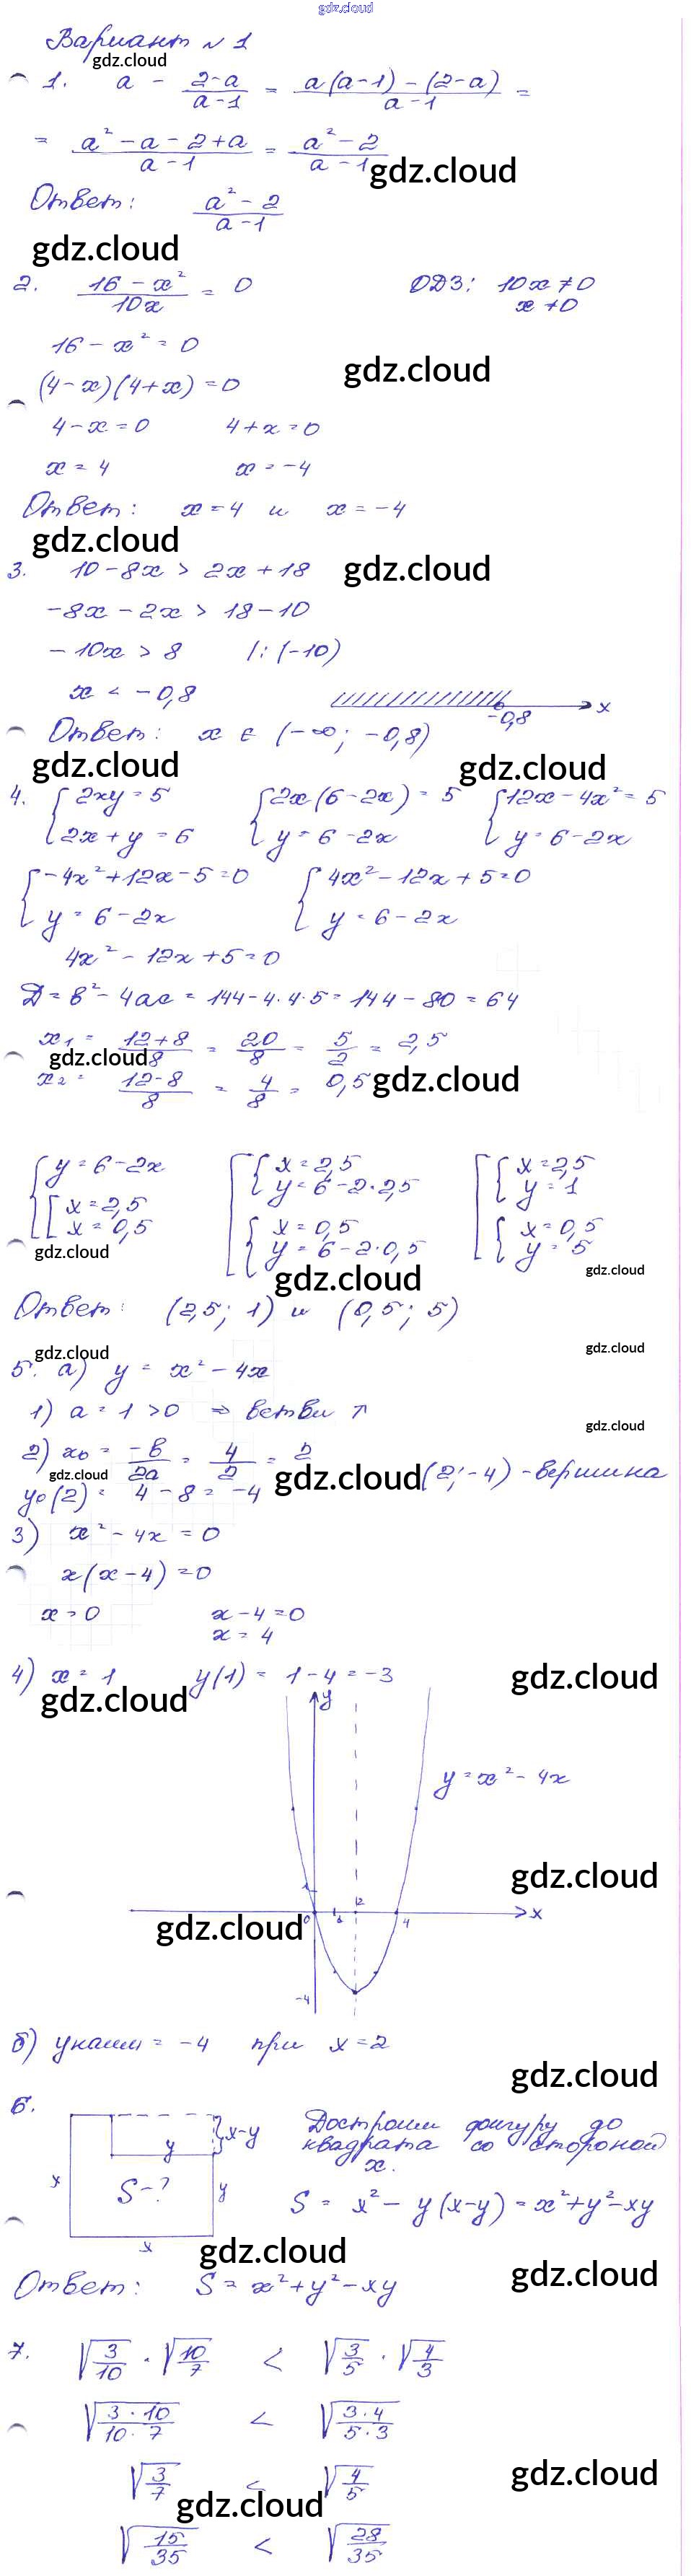 gdz.cloud
Вариант №1
gdz.cloud
1. a - (2-a)/(a-1) = (a(a-1) - (2-a))/(a-1) =
= (a² - a - 2 + a)/(a-1) = (a² - 2)/(a-1)
gdz.cloud
Ответ: (a² - 2)/(a-1)
gdz.cloud
2. (16 - x²)/(10x) = 0 ОДЗ: 10x ≠ 0
x ≠ 0
16 - x² = 0
gdz.cloud
(4-x)(4+x) = 0
4-x=0 4+x=0
x = 4 x = -4
Ответ: x=4 и x=-4
gdz.cloud
3. 10-8x > 2x+18
gdz.cloud
-8x-2x > 18-10
-10x > 8 /:(-10)
x < -0,8
-0,8 x
Ответ: x ∈ (-∞; -0,8)
gdz.cloud
gdz.cloud
4. {2xy=5 {2x(6-2x)=5 {12x-4x²=5
{2x+y=6 {y=6-2x {y=6-2x
{-4x²+12x-5=0 {4x²-12x+5=0
{y=6-2x {y=6-2x
4x²-12x+5=0
Д=в²-4ac=144-4·4·5=144-80=64
x₁ = (12+8)/8 = 20/8 = 5/2 = 2,5
gdz.cloud
x₂ = (12-8)/8 = 4/8 = 0,5
gdz.cloud
{y=6-2x [{x=2,5 [{x=2,5
{[x=2,5 {y=6-2·2,5 {y=1
[x=0,5 {x=0,5 {x=0,5
{y=6-2·0,5 {y=5
gdz.cloud
gdz.cloud
gdz.cloud
Ответ: (2,5; 1) и (0,5; 5)
gdz.cloud
gdz.cloud
5. а) y = x²-4x
1) a=1>0 ⇒ ветви ↑
gdz.cloud
2) x₀ = -в/2a = 4/2 = 2
gdz.cloud
gdz.cloud
(2;-4)-вершина
y₀(2) = 4-8 = -4
3) x²-4x=0
x(x-4)=0
x=0 x-4=0
x=4
4) x=1 y(1) = 1-4 = -3
gdz.cloud
gdz.cloud
y
y=x²-4x
gdz.cloud
1
2
0 1 4 x
gdz.cloud
-4
б) yнаим = -4 при x=2
gdz.cloud
6.
x-y
Достроим фигуру до
квадрата со стороной
x.
y
x S-? y
S = x²-y(x-y)=x²+y²-xy
x
gdz.cloud
gdz.cloud
Ответ: S=x²+y²-xy
7. √(3/10) · √(10/7) < √(3/5) · √(4/3)
√((3·10)/(10·7)) < √((3·4)/(5·3))
√(3/7) < √(4/5)
gdz.cloud
gdz.cloud
√(15/35) < √(28/35)